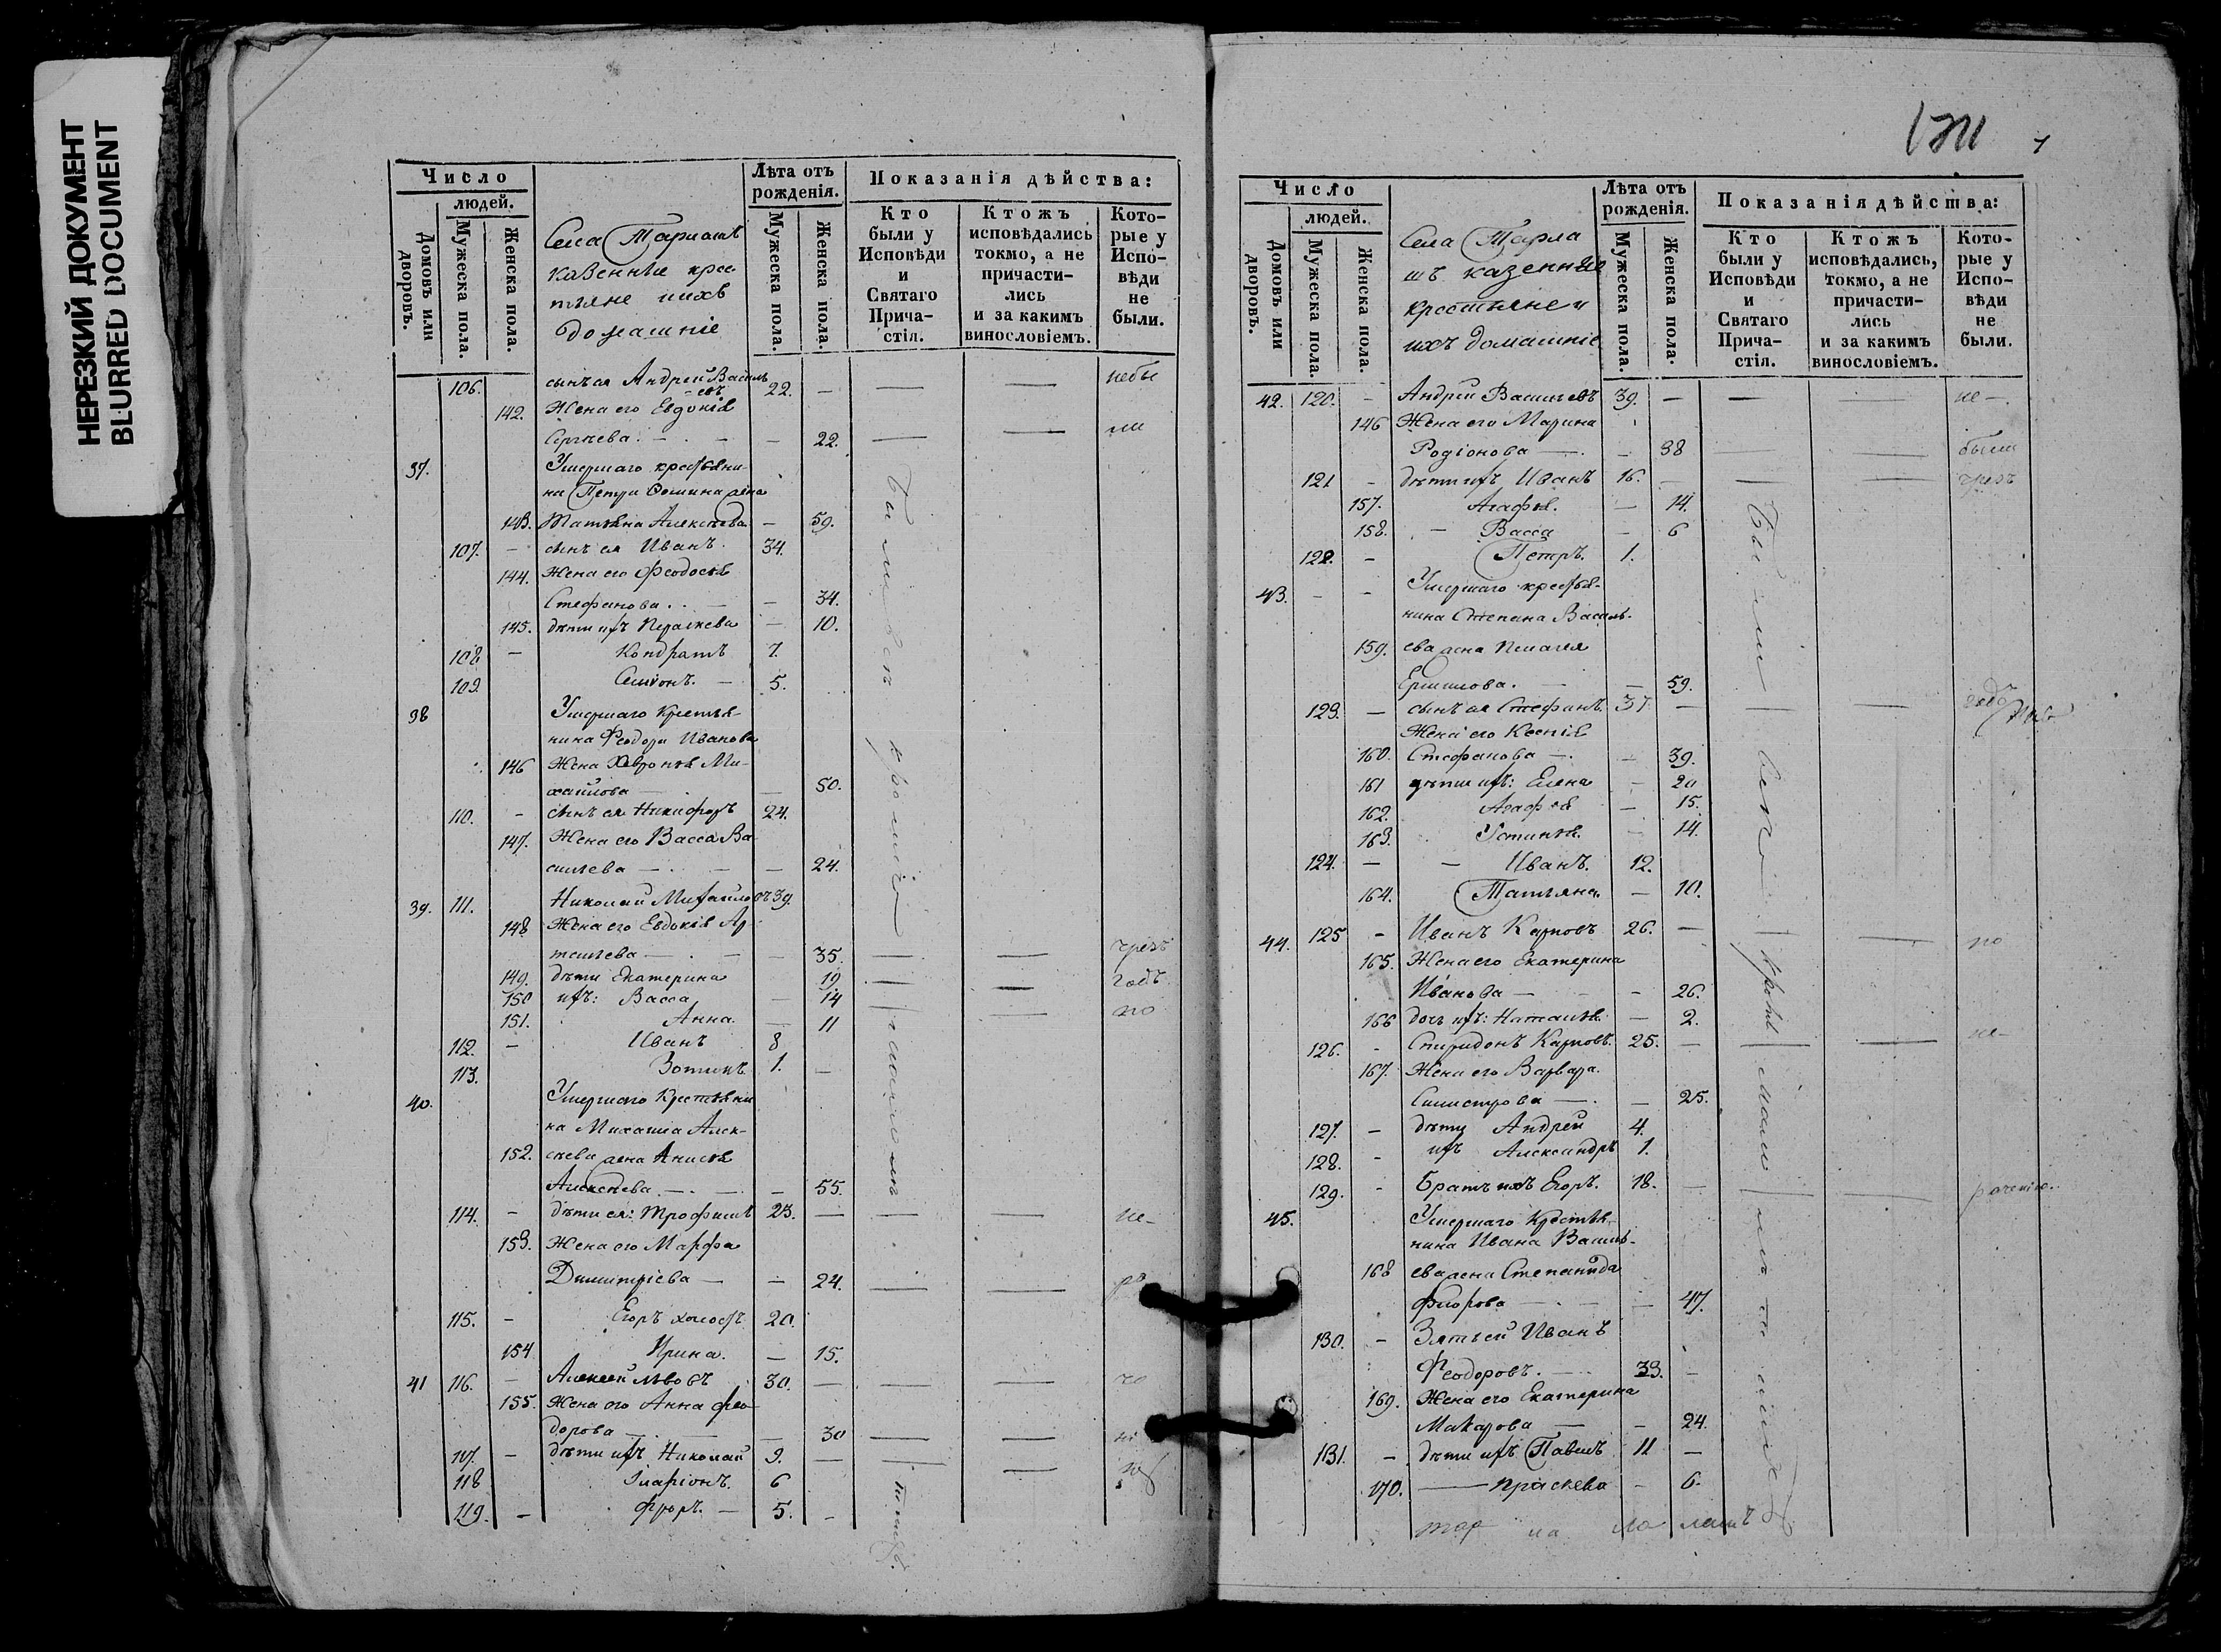 НЕРЕЗКИЙ ДОКУМЕНТ
BLURRED DOCUMENT
Число
людей.
Домовъ или дворовъ.
Мужеска пола.
Женска пола.
Села Тарлашъ
казенные крес
тьяне ихъ
домашніе
Лѣта отъ рожденія.
Мужеска пола.
Женска пола.
Показанія дѣйства:
Кто были у Исповѣди и Святаго Прича- стія.
Ктожъ исповѣдались токмо, а не причасти- лись и за какимъ винословіемъ.
Кото- рые у Испо- вѣди не были.
106. сынъ ея Андрей Василь 22. — — — небы
евъ
142. Жена его Евдокія
Сергѣева. — — 22. — — ли
37. Умершаго крестьяни-
на Петра жена
143. Татьяна Алексѣева — 59.
107. — сынъ ея Иванъ. 34.
144. Жена его Феодосья
Стефанова. — — 34.
145. дѣти ихъ Параскева — 10.
108 — Кондратъ 7.
109. Семіонъ. — 5.
38 Умершаго крестья-
нина Феодора Иванова
146 Жена Хавронья Ми-
хайлова — — 50.
110. — сынъ ея Никифоръ 24.
147. Жена его Васса Ва
сильева — — — 24.
39. 111. Николай Михайловъ 39.
148 Жена его Евдокія Ар
темьева — — — 35. — — чрезъ
149. дѣти Екатерина 19 — — годъ
150 ихъ: Васса — 14 — по
151. Анна. — 11
112. — Иванъ 8
113. Зотикъ. 1. —
40. Умершаго Крестьяни
на Михаила Алек-
152. сѣева жена Анисья
Алексѣева. — — — 55.
114. — дѣти ея: Трофимъ 23. — — — не-
153. Жена его Марфа
Димитріева — — 24. — — ра
115. — Егоръ холостъ. 20.
154 Ирина. — 15.
41 116. — Алексей Львовъ 30. — — —
155. Жена его Анна фео
дорова — — — 30 — —
117. — дѣти ихъ Николай 9. — — —
118 Иларіонъ. 6
119. — Флоръ. — 5. —
Были вси кроме
Число
людей.
Домовъ или дворовъ.
Мужеска пола.
Женска пола.
Села Тарла
шъ казенные
крестьяне и
ихъ домашніе
Лѣта отъ рожденія.
Мужеска пола.
Женска пола.
Показанія дѣйства:
Кто были у Исповѣди и Святаго Прича- стія.
Ктожъ исповѣдались, токмо, а не причасти- лись и за какимъ винословіемъ.
Кото- рые у Испо- вѣди не были.
42. 120. — Андрей Васильевъ 39. — — — не —.
146 Жена его Марина
Родіонова — — 38 — — были
121 — дѣти ихъ Иванъ 16. — — — чрезъ
157. Агафья. — 14.
158. — Васса — 6
122. — Петръ. 1.
43. — — Умершаго крестья-
нина Степана Василь-
159. ева жена Пелагея
Ермилова. — — 59.
123. — сынъ ея Стефанъ. 37. — — — годъ
Жена его Ксенія
160. Стефанова — — 39.
161 дѣти ихъ: Елена — 20
162. Агафья — 15.
163. Устинья. — 14.
124. — — Иванъ. 12.
164. Татьяна. — 10.
44. 125 — Иванъ Карповъ 26. — — — по
165. Жена его Екатерина
Иванова — — 26.
166 дочь ихъ: Наталья. — 2.
126. — Спиридонъ Карповъ. 25. — — — не-
167. Жена его Варвара.
Силистрова — — 25.
127. — дѣти Андрей 4.
128. — ихъ Александръ 1.
129. — Братъ ихъ Егоръ. 18. — — — раченію.
45. Умершаго Крестья-
нина Ивана Василь-
168 ева жена Степанида
Флорова — — — 47.
130. — Зять ей Иванъ
Феодоровъ. — 33. —
169. Жена его Екатерина
Макарова — — 24.
131. — дѣти ихъ Павелъ 11 —
170. — Праскева — 6.
Были вси кроме малолѣтнихъ